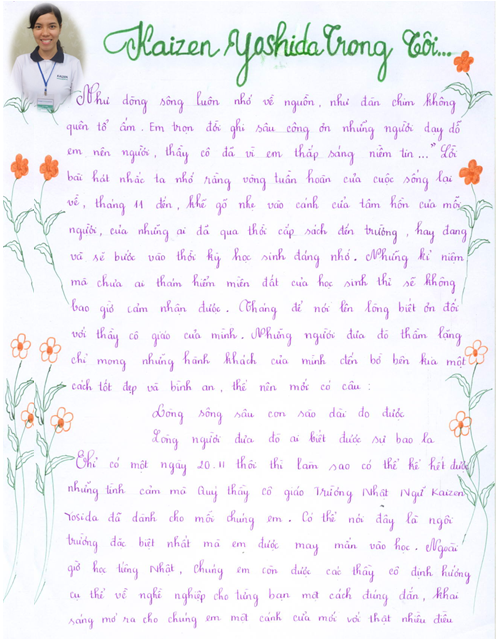 Kaizen Yoshida Trong Tôi...
"Như dòng sông luôn nhớ về nguồn, như đàn chim không
quên tổ ấm. Em trọn đời ghi sâu công ơn những người dạy dỗ
em nên người, thầy cô đã vì em thắp sáng niềm tin..." Lời
bài hát nhắc ta nhớ rằng vòng tuần hoàn của cuộc sống lại
về, tháng 11 đến, khẽ gõ nhẹ vào cánh cửa tâm hồn của mỗi
người, của những ai đã qua thời cắp sách đến trường, hay đang
và sẽ bước vào thời kỳ học sinh đáng nhớ. Những kỉ niệm
mà chưa ai thám hiểm miền đất của học sinh thì sẽ không
bao giờ cảm nhận được. Chẳng để nói lên lòng biết ơn đối
với thầy cô giáo của mình. Những người đưa đò thầm lặng
chỉ mong những hành khách của mình đến bờ bên kia một
cách tốt đẹp và bình an, thế nên mới có câu:
Lòng sông sâu con sào dài đo được
Lòng người đưa đò ai biết được sự bao la
Chỉ có một ngày 20.11 thôi thì làm sao có thể kể hết được
những tình cảm mà Quý thầy cô giáo Trường Nhật Ngữ Kaizen
Yosida đã dành cho mỗi chúng em. Có thể nói đây là ngôi
trường đặc biệt nhất mà em được may mắn vào học. Ngoài
giờ học tiếng Nhật, chúng em còn được các thầy cô định hướng
cụ thể về nghề nghiệp cho từng bạn một cách đúng đắn, khai
sáng mở ra cho chúng em một cánh cửa mới với thật nhiều điều